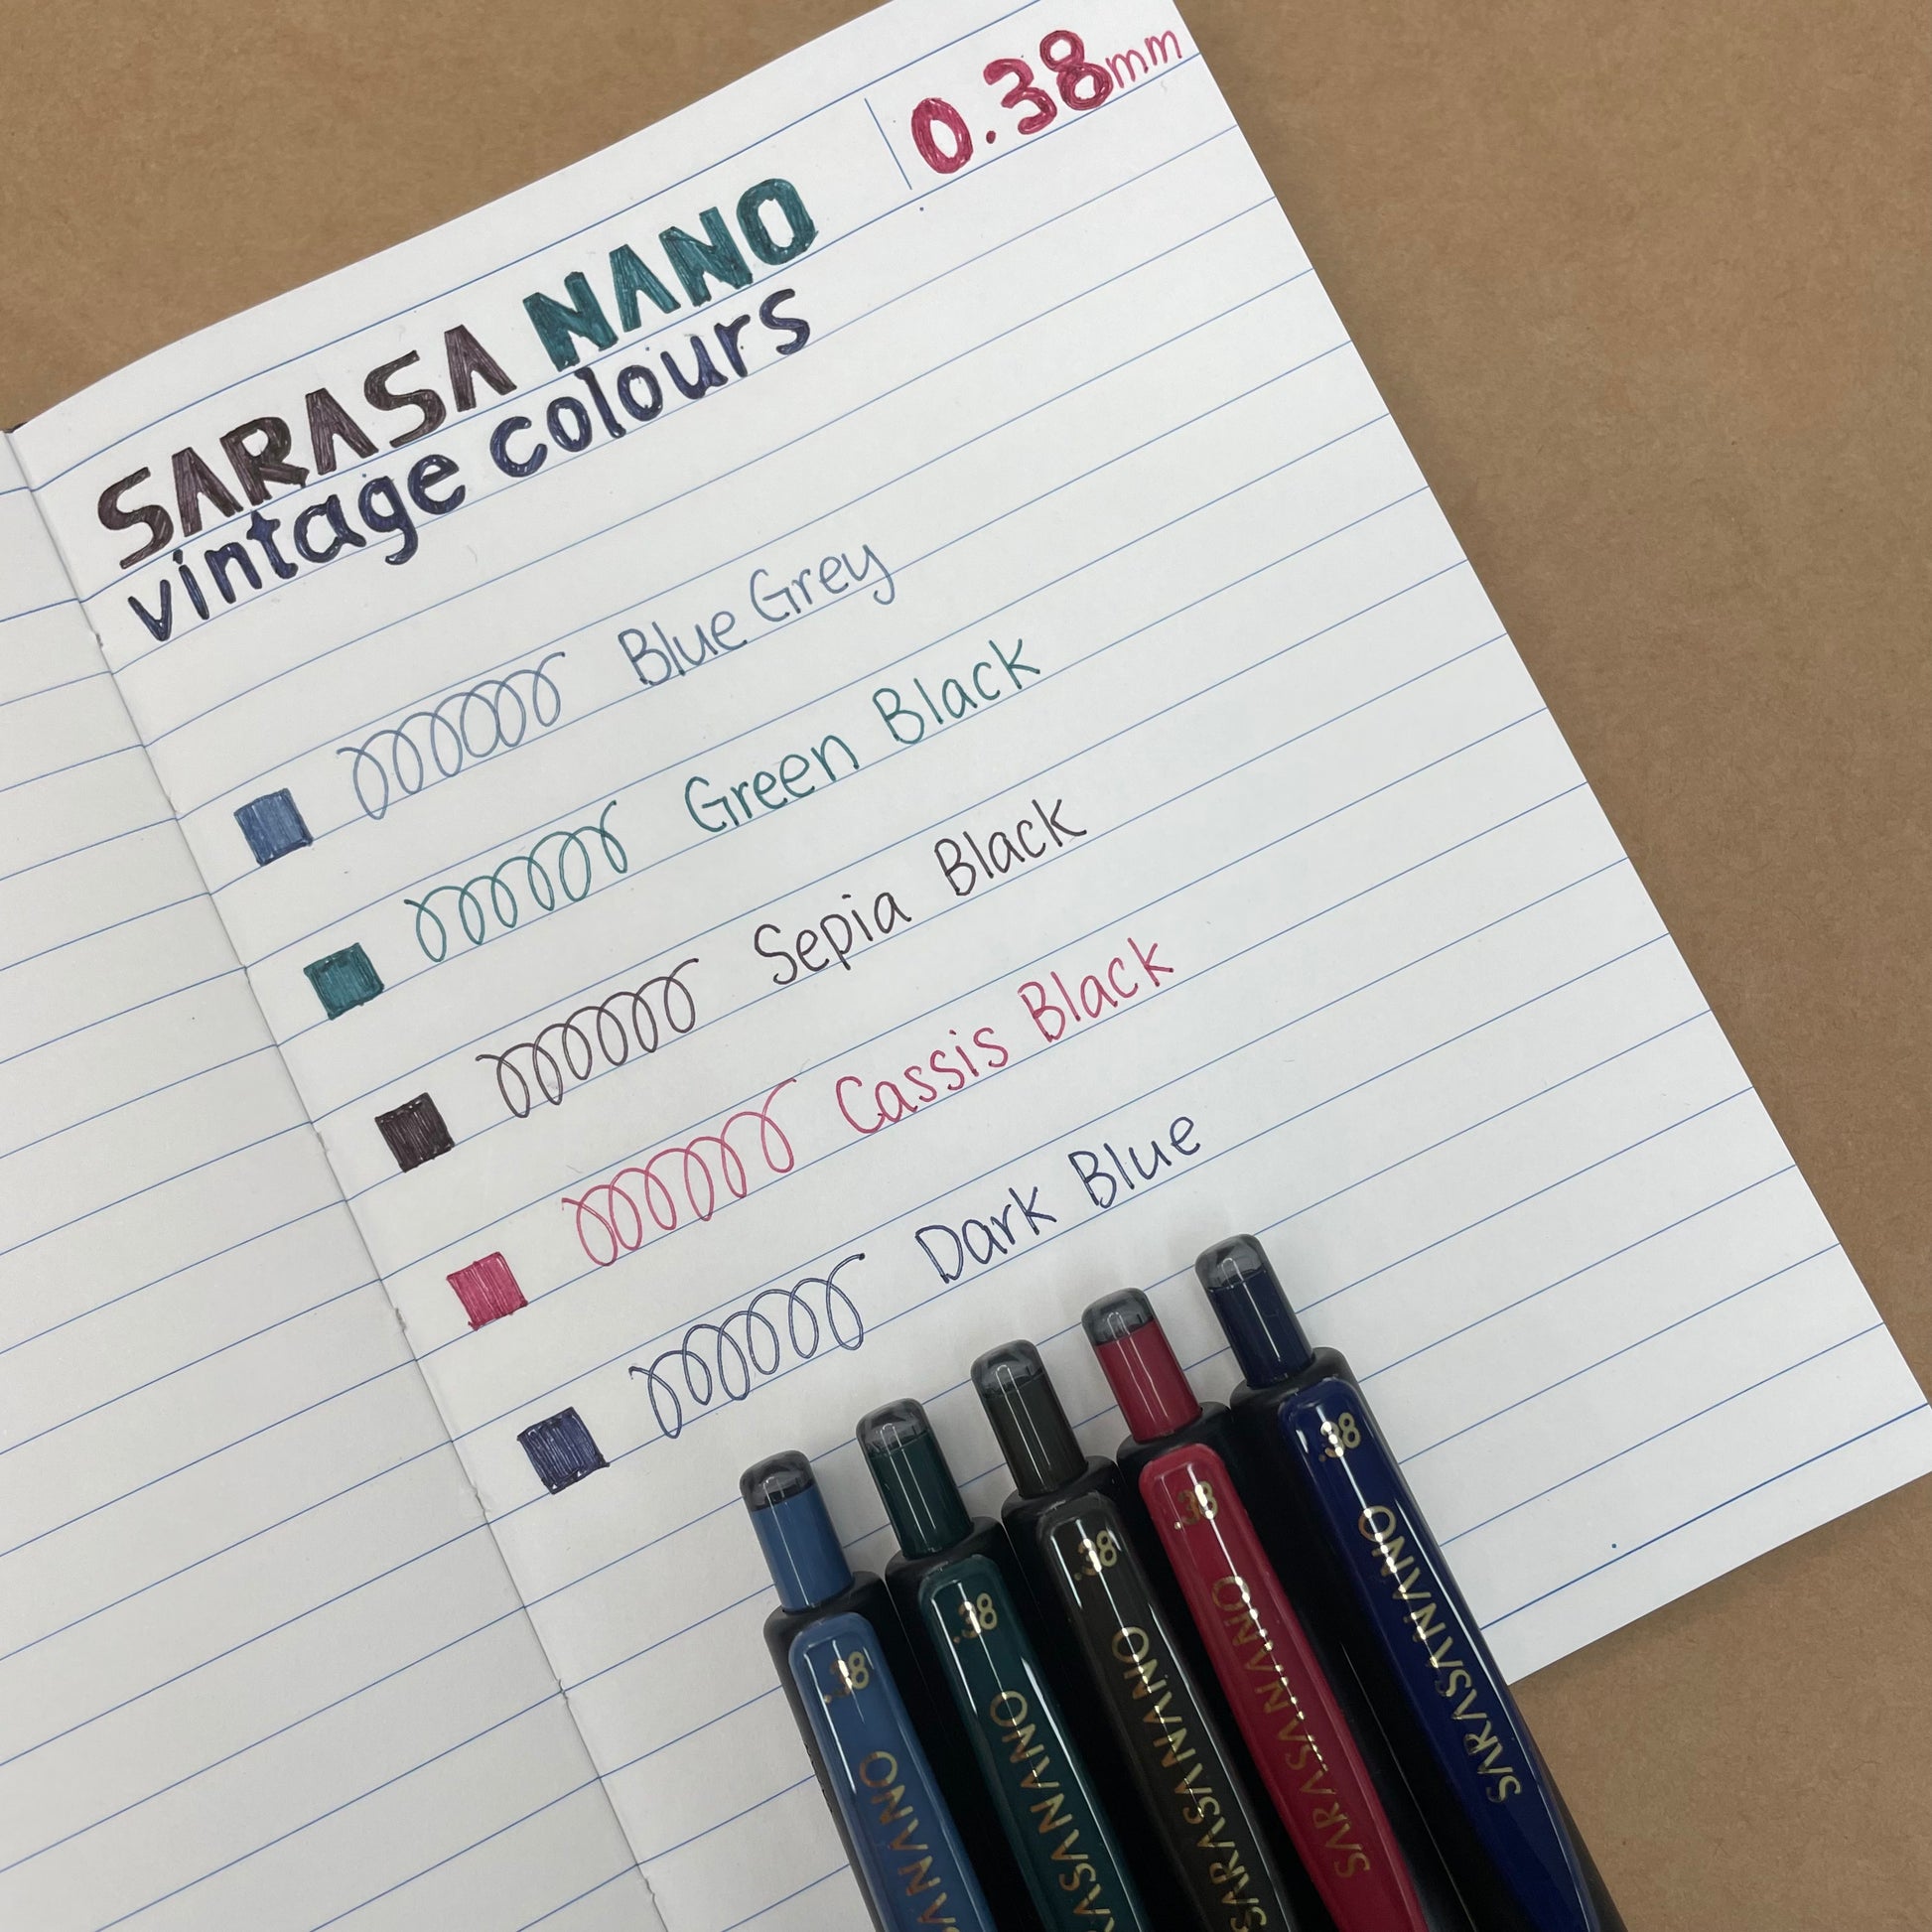 0.38mm
SARASA NANO
vintage colours
Blue Grey
Green Black
Sepia Black
Cassis Black
Dark Blue
.38
.38
.38
.38
.38
SARASANANO
SARASANANO
SARASANANO